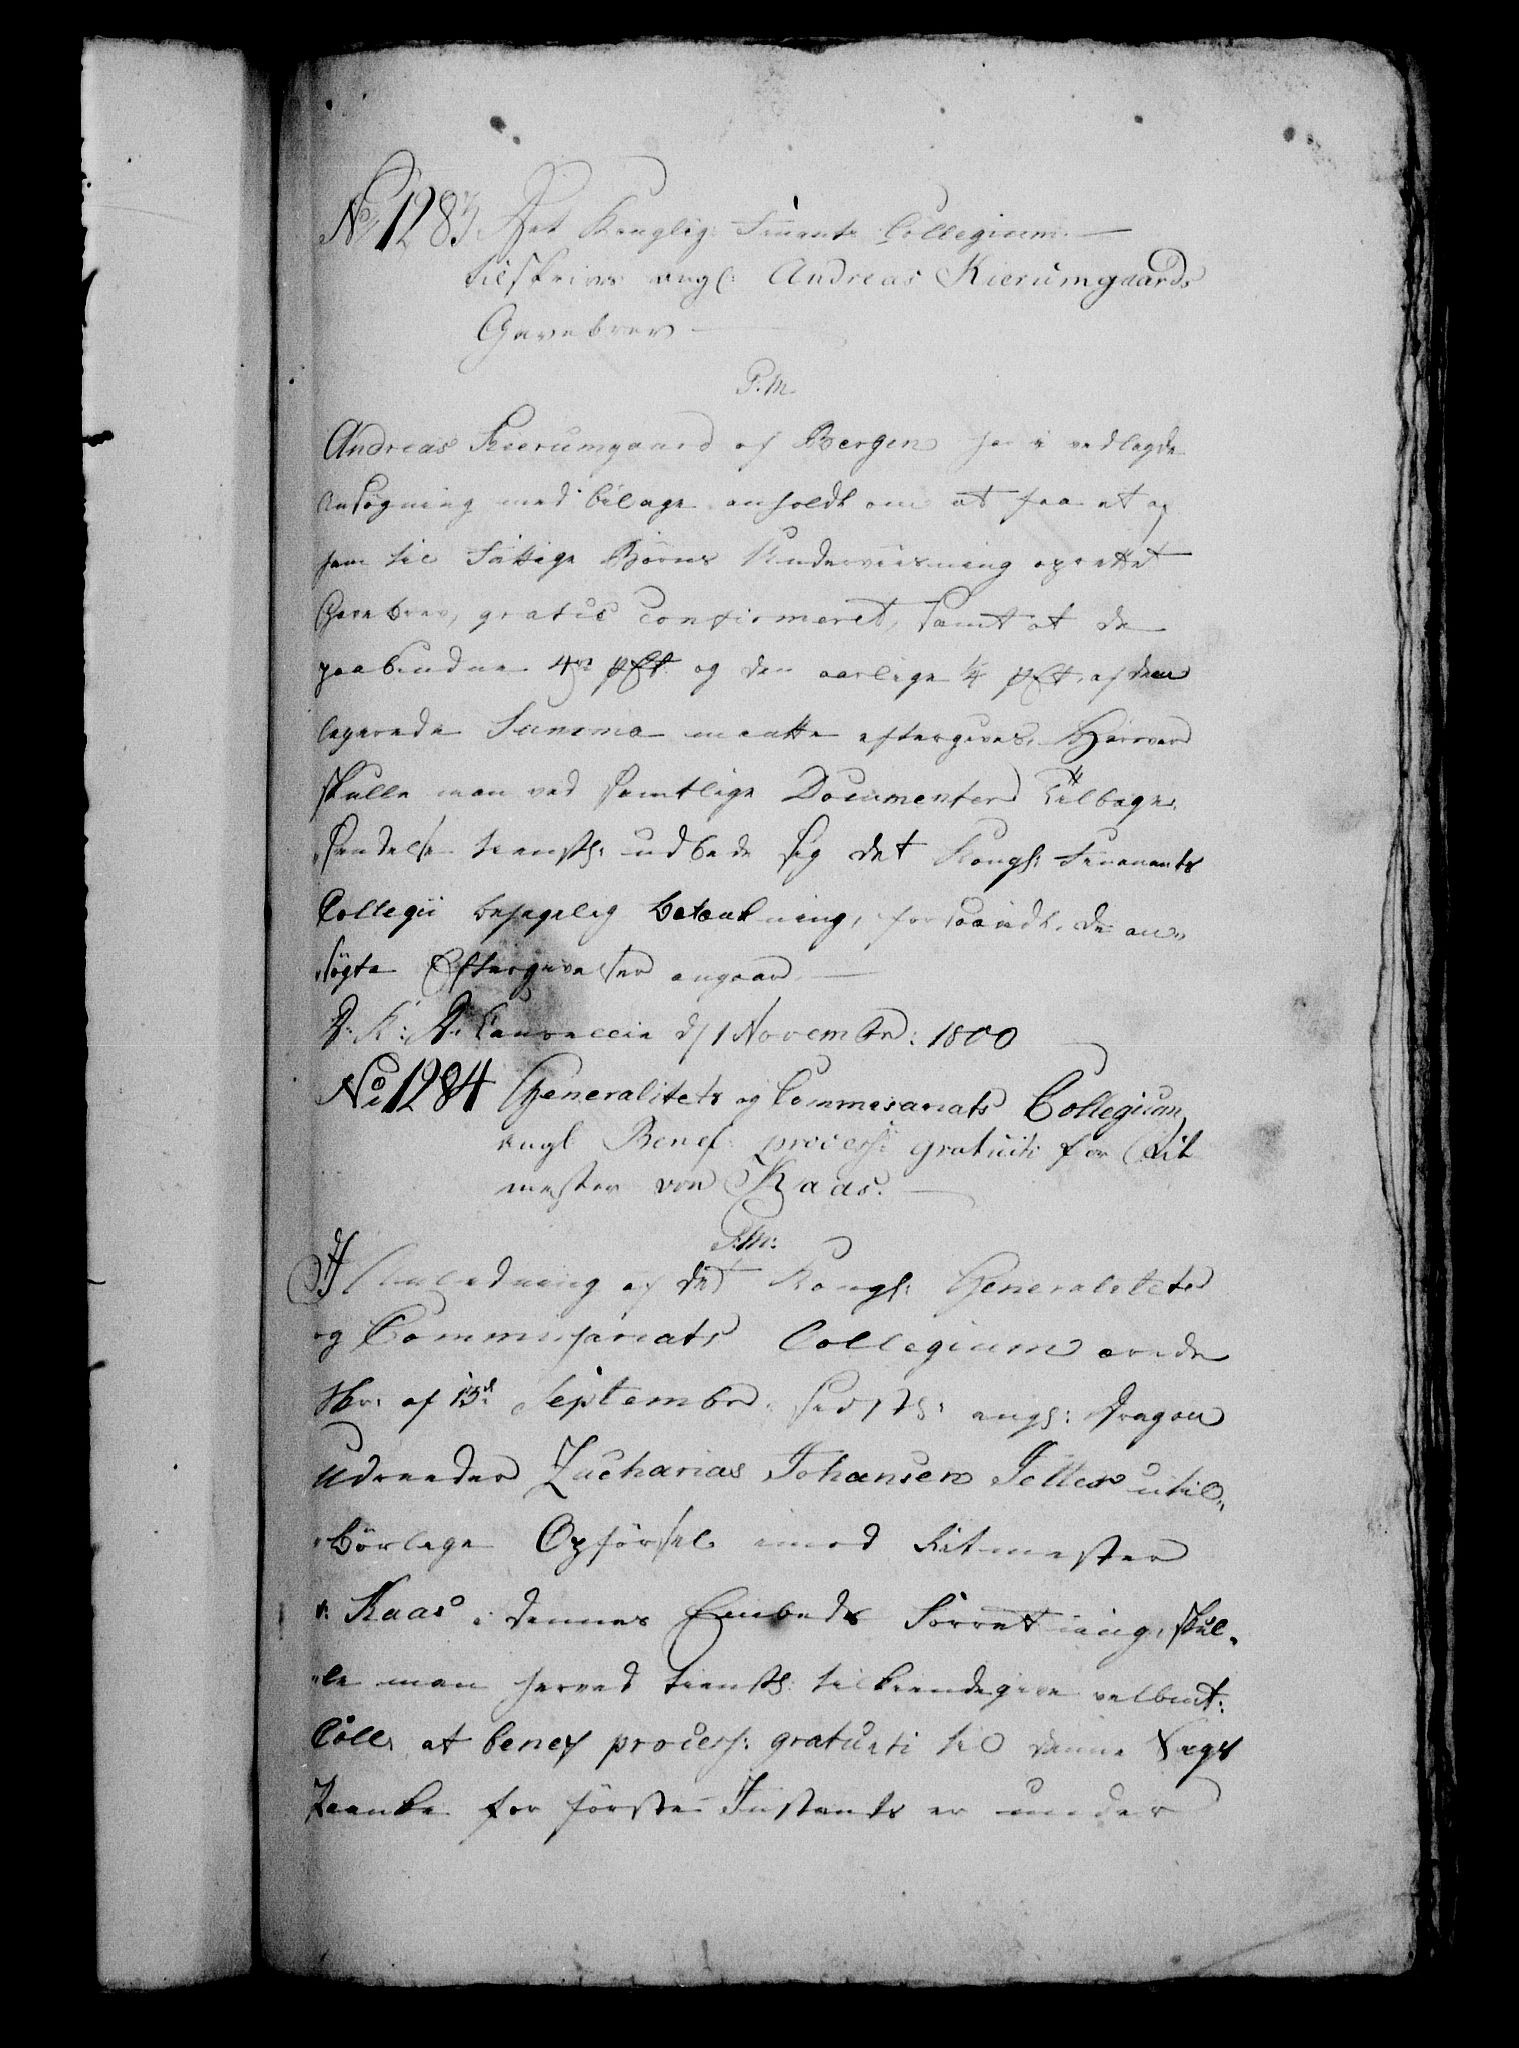 No 1283 Det Kongelig: Finants Collegium
tilskrives angl: Andreas Kierumgaards
Gavebrev
P.M.
Andreas Kierumgaard af Bergen har i vedlagde
Ansøgning med bilage anholdt om at faa et af
ham til Fattige Børns Underviisning oprettet
Gavebrev, gratis confirmeret, samt at de
paabudne 4re pCt og den aarlige ¼ pCt. af den
legerede Summa maatte eftergives. Herover
skulle man ved samtlige Documenters Tilbage,,
,,sendelse tienstl: udbede sig det Kongl: Finants
Collegii behagelig betænkning, forsaavidt de an,,
,,søgte Eftergivelser angaaer
D: K: D: Cancellie d/ 1 Novembr: 1800
No 1284 Generalitets og Commisariats Collegium
angl Benef: process: gratuiti for Rit
mester von Kaas.
P:M:
I Anledning af det Kongl: Generalitets
og Commisariats Collegium ærede
Skr: af 13de Septembr. sidstl: angl: Dragon
Udreeder Zacharias Johansen Jelles util,,
,,børlige Opførsel imod Ritmester
v: Kaas i dennes Embeds Forretning, skul,,
,,le man herved tienstl: tilkiendegive velbmt:
Coll: at benef process: gratuiti til denne Sags
for første Instants er under